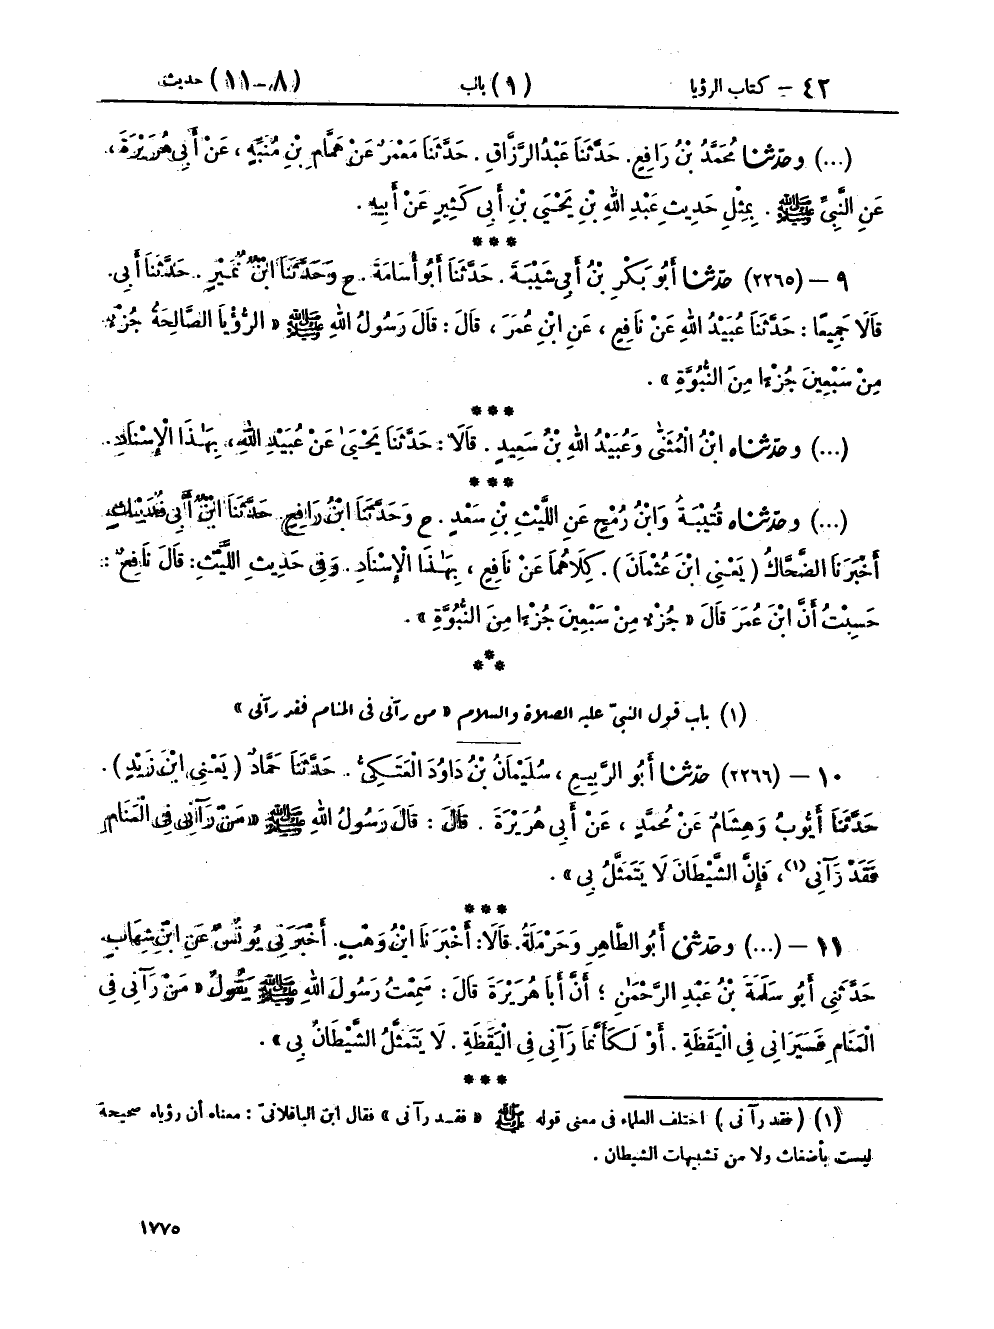 ٤٢ – كتاب الرؤيا (١) باب (٨–١١) حديث
(...) وحَدَّثَنَا مُحَمَّدُ بْنُ رَافِعٍ. حَدَّثَنَا عَبْدُ الرَّزَّاقِ. حَدَّثَنَا مَعْمَرٌ عَنْ هَمَّامِ بْنِ مُنَبِّهٍ، عَنْ أَبِي هُرَيْرَةَ،
عَنِ النَّبِيِّ ﷺ. بِمِثْلِ حَدِيثِ عَبْدِ اللهِ بْنِ يَحْيَى بْنِ أَبِي كَثِيرٍ عَنْ أَبِيهِ.
***
٩ – (٢٢٦٥) حَدَّثَنَا أَبُو بَكْرِ بْنُ أَبِي شَيْبَةَ. حَدَّثَنَا أَبُو أُسَامَةَ. ح وَحَدَّثَنَا ابْنُ نُمَيْرٍ. حَدَّثَنَا أَبِي.
قَالَا جَمِيعًا: حَدَّثَنَا عُبَيْدُ اللهِ عَنْ نَافِعٍ، عَنِ ابْنِ عُمَرَ، قَالَ: قَالَ رَسُولُ اللهِ ﷺ «الرُّؤْيَا الصَّالِحَةُ جُزْءٌ
مِنْ سَبْعِينَ جُزْءًا مِنَ النُّبُوَّةِ».
***
(...) وحَدَّثَنَاه ابْنُ الْمُثَنَّى وَعُبَيْدُ اللهِ بْنُ سَعِيدٍ. قَالَا: حَدَّثَنَا يَحْيَىٰ عَنْ عُبَيْدِ اللهِ، بِهَٰذَا الْإِسْنَادِ.
***
(...) وحَدَّثَنَاه قُتَيْبَةُ وَابْنُ رُمْحٍ عَنِ اللَّيْثِ بْنِ سَعْدٍ. ح وَحَدَّثَنَا ابْنُ رَافِعٍ. حَدَّثَنَا ابْنُ أَبِي فُدَيْكٍ.
أَخْبَرَنَا الضَّحَّاكُ (يَعْنِي ابْنَ عُثْمَانَ). كِلَاهُمَا عَنْ نَافِعٍ، بِهَٰذَا الْإِسْنَادِ. وَفِي حَدِيثِ اللَّيْثِ: قَالَ نَافِعٌ:
حَسِبْتُ أَنَّ ابْنَ عُمَرَ قَالَ «جُزْءٌ مِنْ سَبْعِينَ جُزْءًا مِنَ النُّبُوَّةِ».
***
(١) باب قول النبيّ عليه الصلاة والسلام «من رآني في المنام فقد رآني»
١٠ – (٢٢٦٦) حَدَّثَنَا أَبُو الرَّبِيعِ، سُلَيْمَانُ بْنُ دَاوُدَ الْعَتَكِيُّ. حَدَّثَنَا حَمَّادٌ (يَعْنِي ابْنَ زَيْدٍ).
حَدَّثَنَا أَيُّوبُ وَهِشَامٌ عَنْ مُحَمَّدٍ، عَنْ أَبِي هُرَيْرَةَ. قَالَ: قَالَ رَسُولُ اللهِ ﷺ «مَنْ رَآنِي فِي الْمَنَامِ
فَقَدْ رَآنِي(١)، فَإِنَّ الشَّيْطَانَ لَا يَتَمَثَّلُ بِي».
***
١١ – (...) وحَدَّثَنِي أَبُو الطَّاهِرِ وَحَرْمَلَةُ. قَالَا: أَخْبَرَنَا ابْنُ وَهْبٍ. أَخْبَرَنِي يُونُسُ عَنِ ابْنِ شِهَابٍ.
حَدَّثَنِي أَبُو سَلَمَةَ بْنُ عَبْدِ الرَّحْمَٰنِ؛ أَنَّ أَبَا هُرَيْرَةَ قَالَ: سَمِعْتُ رَسُولَ اللهِ ﷺ يَقُولُ «مَنْ رَآنِي فِي
الْمَنَامِ فَسَيَرَانِي فِي الْيَقَظَةِ. أَوْ لَكَأَنَّمَا رَآنِي فِي الْيَقَظَةِ. لَا يَتَمَثَّلُ الشَّيْطَانُ بِي».
***
(١) (فقد رآني) اختلف العلماء في معنى قوله ﷺ «فقد رآني» فقال ابن الباقلانيّ: معناه أن رؤياه صحيحة
ليست بأضغاث ولا من تشبيهات الشيطان.
١٧٧٥